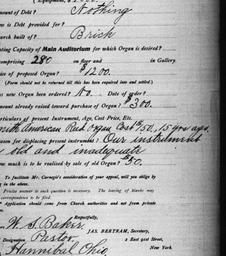 mount of Debt? Nothing
ow is Debt provided for?
hurch built of? Brick
ating Capacity of Main Auditorium for which Organ is desired?
omprising 280 on floor and in Gallery.
rice of proposed Organ? $1200.
(Form should not be returned till this has been inquired into and settled.)
as new Organ been ordered? No. Date of order?
mount already raised toward purchase of Organ? $300.
articulars of present Instrument, Age, Cost Price, Etc.
American Reed Organ Cost $150. 15 years ago.
eason for displacing present instrument? Our instrument
old and inadequate
ow much is to be realized by sale of old Organ? $50.
To facilitate Mr. Carnegie's consideration of your appeal, will you oblige by
ng in the above.
Precise answer to each question is necessary. The leaving of blanks may
correspondence to be
Application should come from Church authorities and not from private
Respectfully,
W. S. Baker, JAS. BERTRAM, Secretary,
Designation Pastor 2 East 91st Street,
Hannibal Ohio, New York.